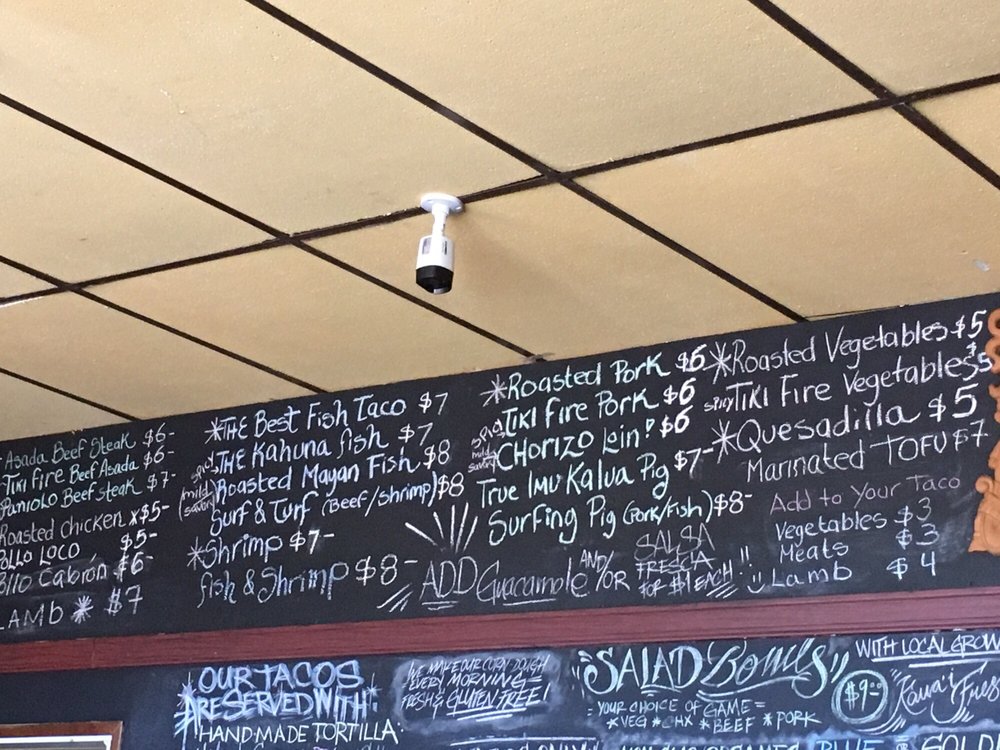 Asada Beef Steak $6-
Tiki Fire Beef Asada $6-
Paniolo Beef steak $7-
Roasted chicken *$5-
Pollo Loco $5-
Cabron $6-
LAMB * $7
*THE Best Fish Taco $7
spicy THE Kahuna fish $7
(mild savory) Roasted Mayan Fish $8
Surf & Turf (Beef/Shrimp) $8
*Shrimp $7-
fish & Shrimp $8-
*Roasted Pork $6
spicy TIKI Fire Pork $6
spicy mild savory CHORIZO Loin! $6
True Imu Kalua Pig $7-
Surfing Pig (Pork/Fish) $8-
ADD Guacamole AND/OR SALSA
FRESCA
FOR $1 EACH!!
*Roasted Vegetables $5
spicy TIKI Fire Vegetables $5
*Quesadilla $5
Marinated TOFU $7
Add to Your Taco
Vegetables $3
Meats $3
Lamb $4
OUR TACOS
ARE SERVED WITH
HANDMADE TORTILLA:
WE MAKE OUR CORN DOUGH
EVERY MORNING =
FRESH & GLUTEN FREE!
SALAD Bowls
$9-
YOUR CHOICE OF GAME =
*VEG *CHX *BEEF *PORK
WITH LOCAL GROW
Kaua'i Fres
ONLY
BLUE